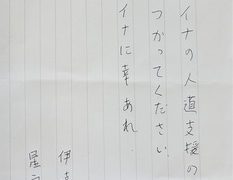 イナの人道支援の
つかってください
イナに幸あれ.
伊
星